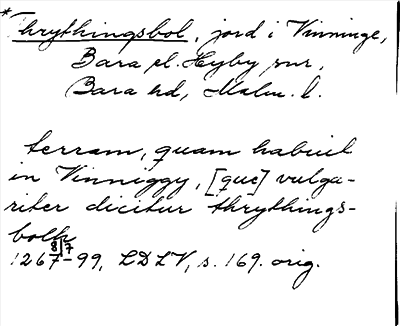 *Thrythingsbol, jord i Vinninge,
Bara el. Hyby snr,
Bara hd, Malm. l.
terram, quam habuit
in Vinniggy, [que] vulga-
riter dicitur thrythings-
bolh
8/7
1267-99, LDLV, s. 169. orig.